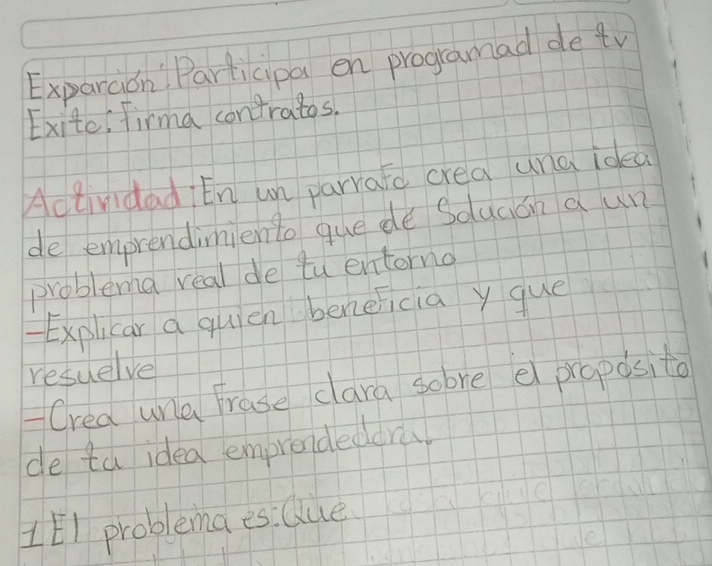 Exparción: Participa en programad de tv
Exito: firma contratos.
Actividad: En un parrafo crea una idea
de emprendimiento que dé Solución a un
problema real de tu entorno
-Explicar a quien beneficia y que
resuelve
-Crea una frase clara sobre el propósito
de tu idea emprendedora.
1 El problema es: Que